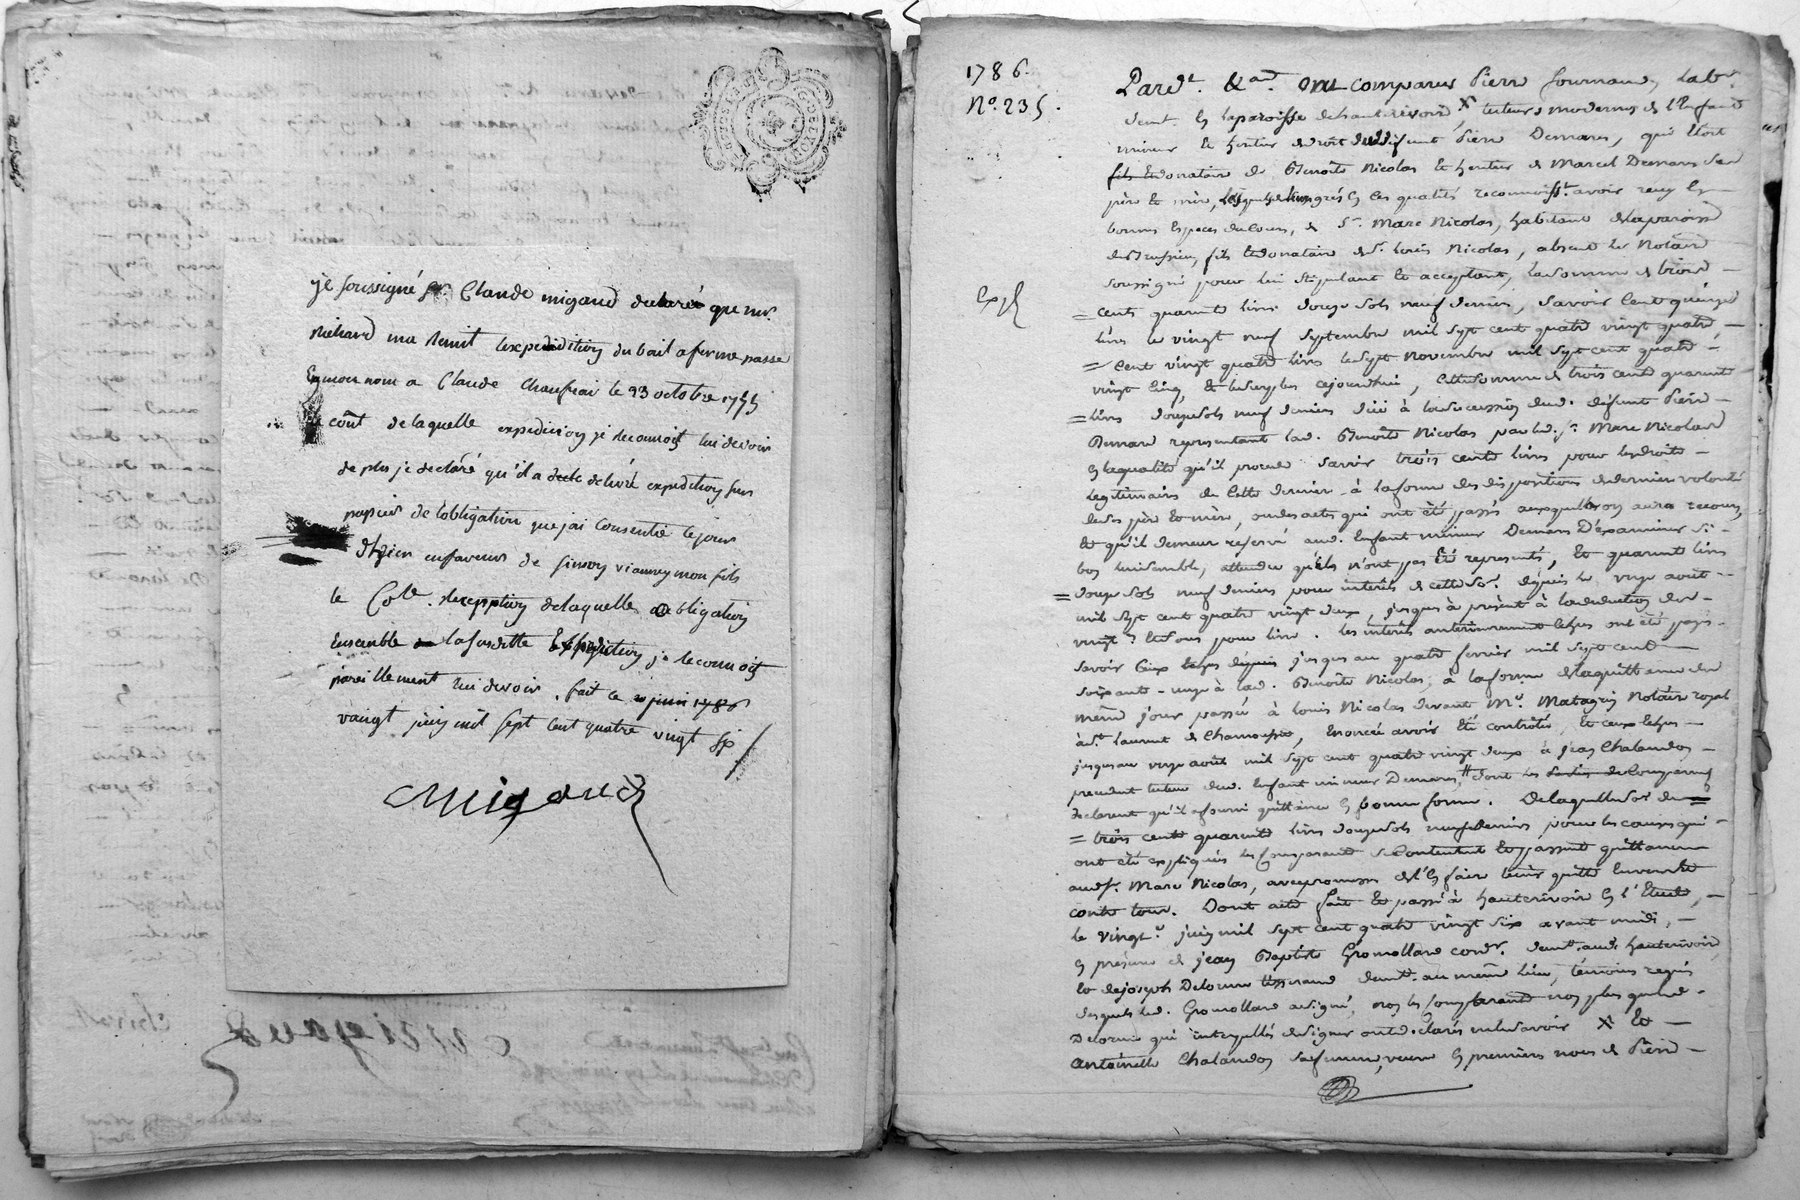 je soussigné Claude migaud declaré que mr.
Richard ma Remit lexpedition du bail a ferme passé
En mon nom a Claude Chaufrai le 23 octobre 1755
le coût de laquelle expedition je reconnoiş lui devoir
de plus je declaré qu'il a delivré expedition sur
papier de l'obligation que j'ai Consentie le jour
d'hier en faveur de simon viannay mon fils
le Cole. de laquelle obligation
Ensemble la susditte Expedition je reconnoiş
pareillement lui devoir. fait ce
vaingt juin mil sept cent quatre vingt six
Migaud
1786.
No. 235.
Exp
Pard.t &a.d ont comparus Pierre fournand, Lab.r
demt. en la paroisse de hauterivoire X, tuteurs modernes de l'Enfant
mineur et heritier de droit dud. defunt Pierre Demare, qui étoit
fils Et donataire de Benoite Nicolas et heritier de Marcel Demare ses
père et mère, lesquels de leurs grés en les qualités reconnoiss.t avoir reçu En
bonnes Especes du cours, de S.r Marc Nicolas, habitant de la paroisse
de Brussieu, fils Et donataire de S.r Louis Nicolas, absent le Notaire
soussigné pour lui stipulant Et acceptant, la somme de trois
cents quarante livres douze sols neuf deniers, savoir Cent quinze
livres le vingt neuf Septembre mil sept cent quatre vingt quatre
Cent vingt quatre livres le sept novembre mil sept cent quatre
vingt cinq, Et le surplus cejourdhui, Cette somme de trois cents quarante
livres douze sols neuf deniers due à la succession dud. défunt Pierre
Demare représentant lad. Benoite Nicolas par led. S.r Marc Nicolas
En la qualité qu'il procede savoir trois cents livres pour les droits
légitimaires de Cette derniere à la forme des dispositions de derniere volonté
de ses père Et mère, ou des actes qui ont été passés auxquels on aura recours,
Et qu'il demeure réservé aud. Enfant mineur Demare D'examiner si
bon lui semble, attendu qu'ils n'ont pas Eté representés, Et quarante livres
douze sols neuf deniers pour interêts de cette so.e depuis le onze août
mil sept cent quatre vingt deux, jusques à présent à la deduction des
vingt.e Et sous pour livre. les interêts anterieurement échus ont été payés
savoir Ceux échus depuis jusques au quatre fevrier mil sept cent
soixante-onze à lad. Benoite Nicolas, à la forme de la quittance du
même jour passée à Louis Nicolas devant M.e Matagrin Notaire royal
à S.t Laurent de Chamousset, Enoncée avoir Eté controlée, Et ceux échus
jusques au onze août mil sept cent quatre vingt deux à jean Chalandon
precedent tuteur dud. Enfant mineur Demare, dont les Comparants
declarent qu'il a fourni quittance En bonne forme. De laquelle so.e de
trois cents quarante livres douze sols neuf deniers pour les causes qui
ont été expliquées les Comparants se Contentent Et passent quittance
aud. S.r Marc Nicolas, avec promesse de l'en faire tenir quitte Envers Et
contre tous. Dont acte fait Et passé à hauterivoire En l'Etude,
le vingt.e juin mil sept cent quatre vingt six avant midi,
En présence de jean Baptiste Gromollard cord.r demt. aud. hauterivoire,
Et de joseph Delorme tisserand demt. au même lieu, témoins requis
desquels led. Gromollard a signé, non les Comparants non plus que led.
Delorme qui interpellés de signer ont declarés ne le savoir X Et
Antoinette Chalandon sa femme, veuve En premieres noces de Pierre